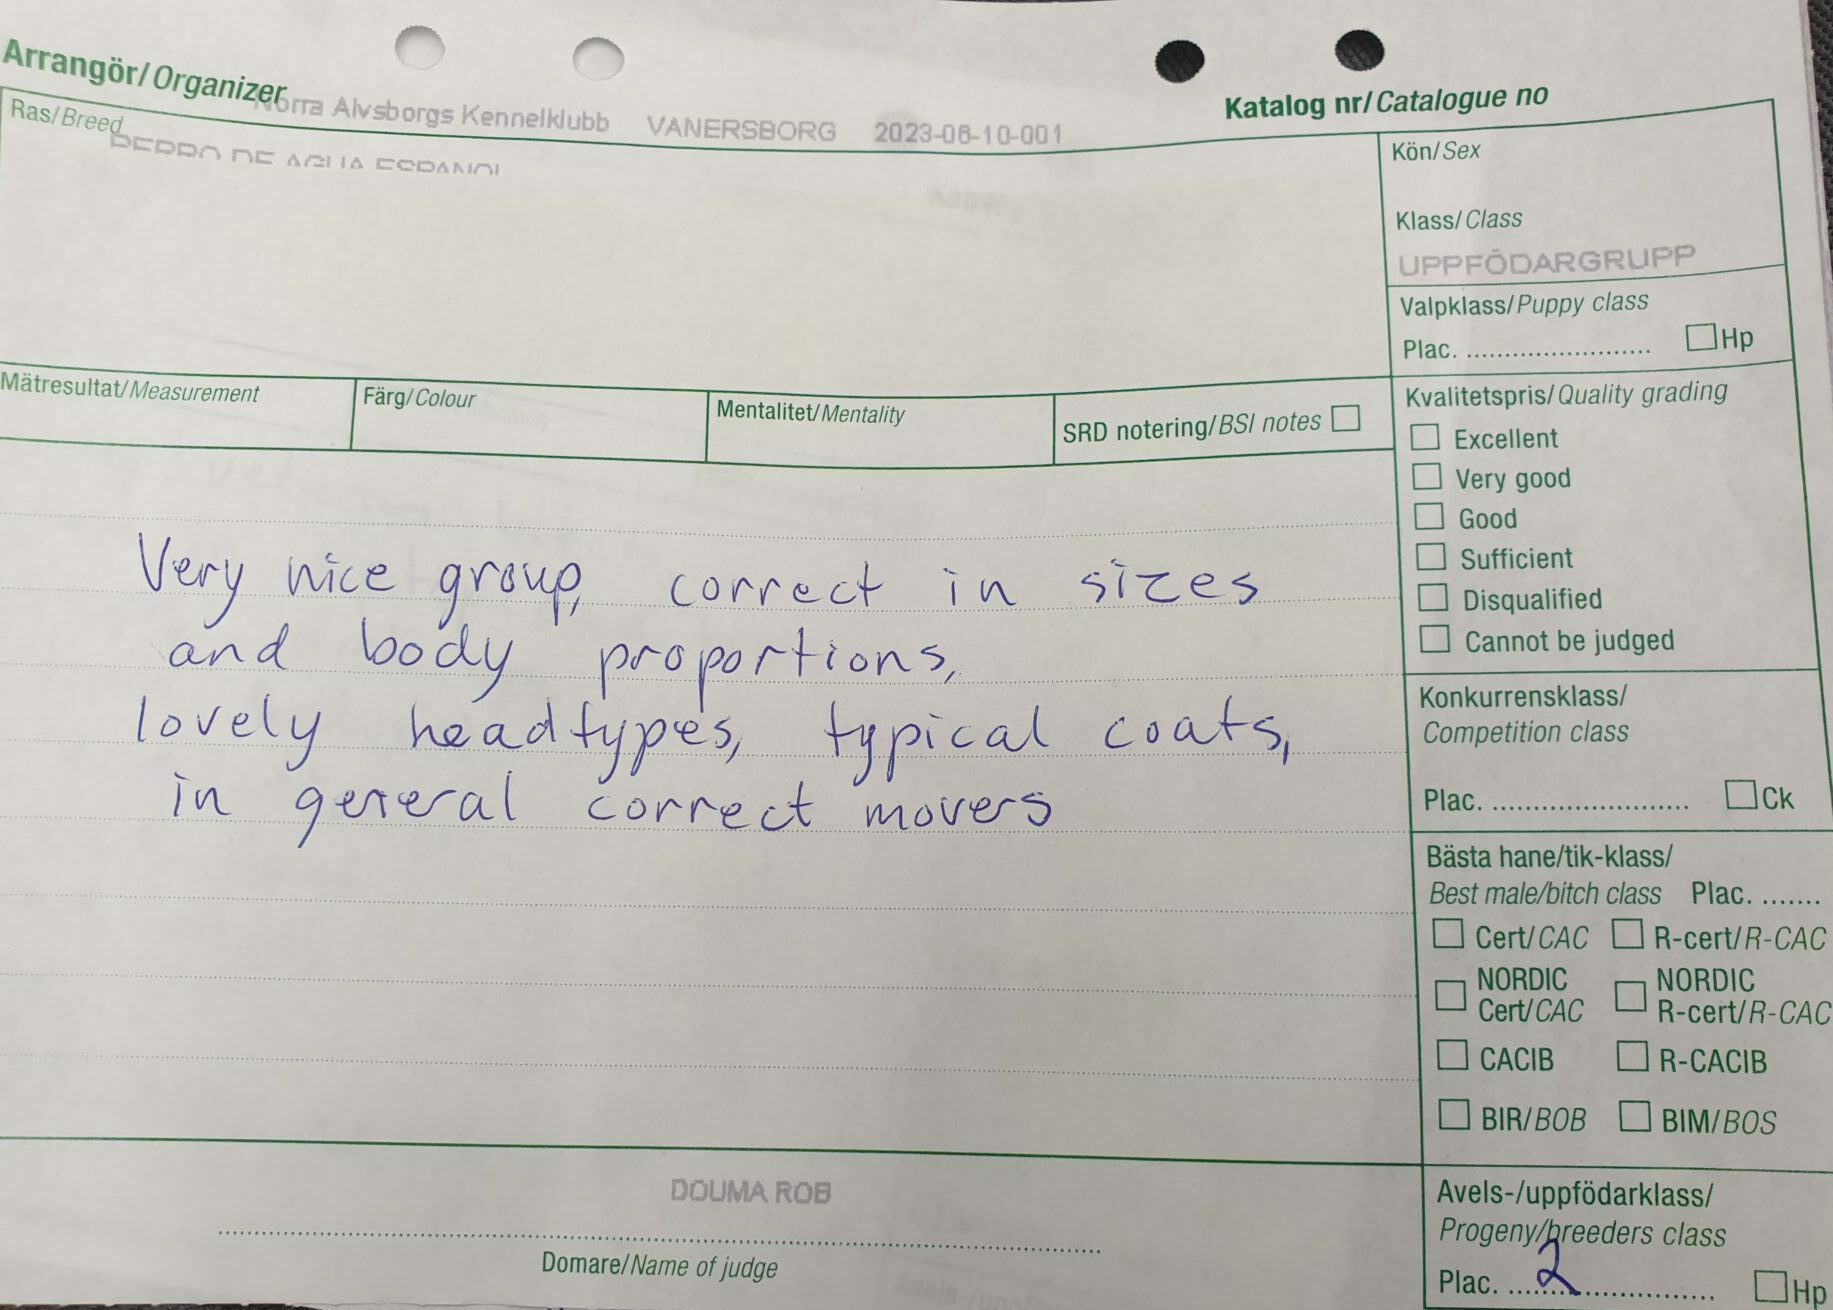 Arrangör/Organizer
Norra Alvsborgs Kennelklubb VANERSBORG 2023-06-10-001
Katalog nr/Catalogue no
Ras/Breed
PERRO DE AGUA ESPANOL
Kön/Sex
Klass/Class
UPPFÖDARGRUPP
Valpklass/Puppy class
Plac. ........................ Hp
Mätresultat/Measurement
Färg/Colour
Mentalitet/Mentality
SRD notering/BSI notes
Kvalitetspris/Quality grading
Excellent
Very good
Good
Sufficient
Disqualified
Cannot be judged
Very nice group, correct in sizes
and body proportions,
lovely headtypes, typical coats,
in general correct movers
Konkurrensklass/
Competition class
Plac. .......................... Ck
Bästa hane/tik-klass/
Best male/bitch class Plac. .......
Cert/CAC R-cert/R-CAC
NORDIC NORDIC
Cert/CAC R-cert/R-CAC
CACIB R-CACIB
BIR/BOB BIM/BOS
DOUMA ROB
Domare/Name of judge
Avels-/uppfödarklass/
Progeny/breeders class
Plac. 2 Hp